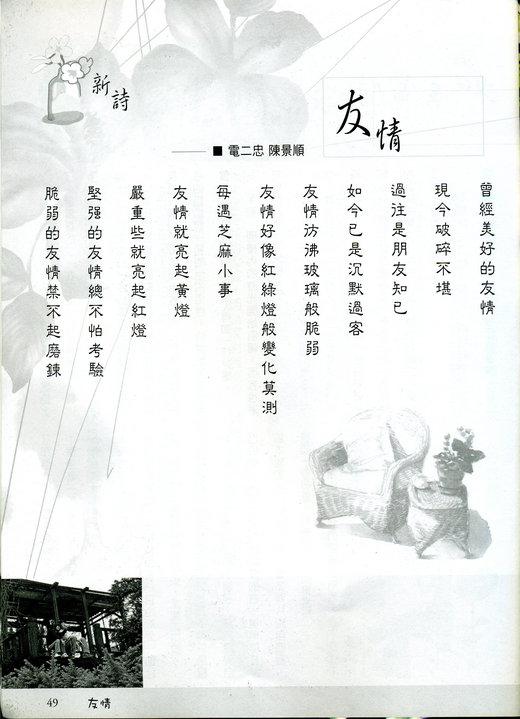 新詩
友情
■ 電二忠 陳景順
曾經美好的友情
現今破碎不堪
過往是朋友知已
如今已是沉默過客
友情彷彿玻璃般脆弱
友情好像紅綠燈般變化莫測
每遇芝麻小事
友情就亮起黃燈
嚴重些就亮起紅燈
堅強的友情總不怕考驗
脆弱的友情禁不起磨鍊
49 友情